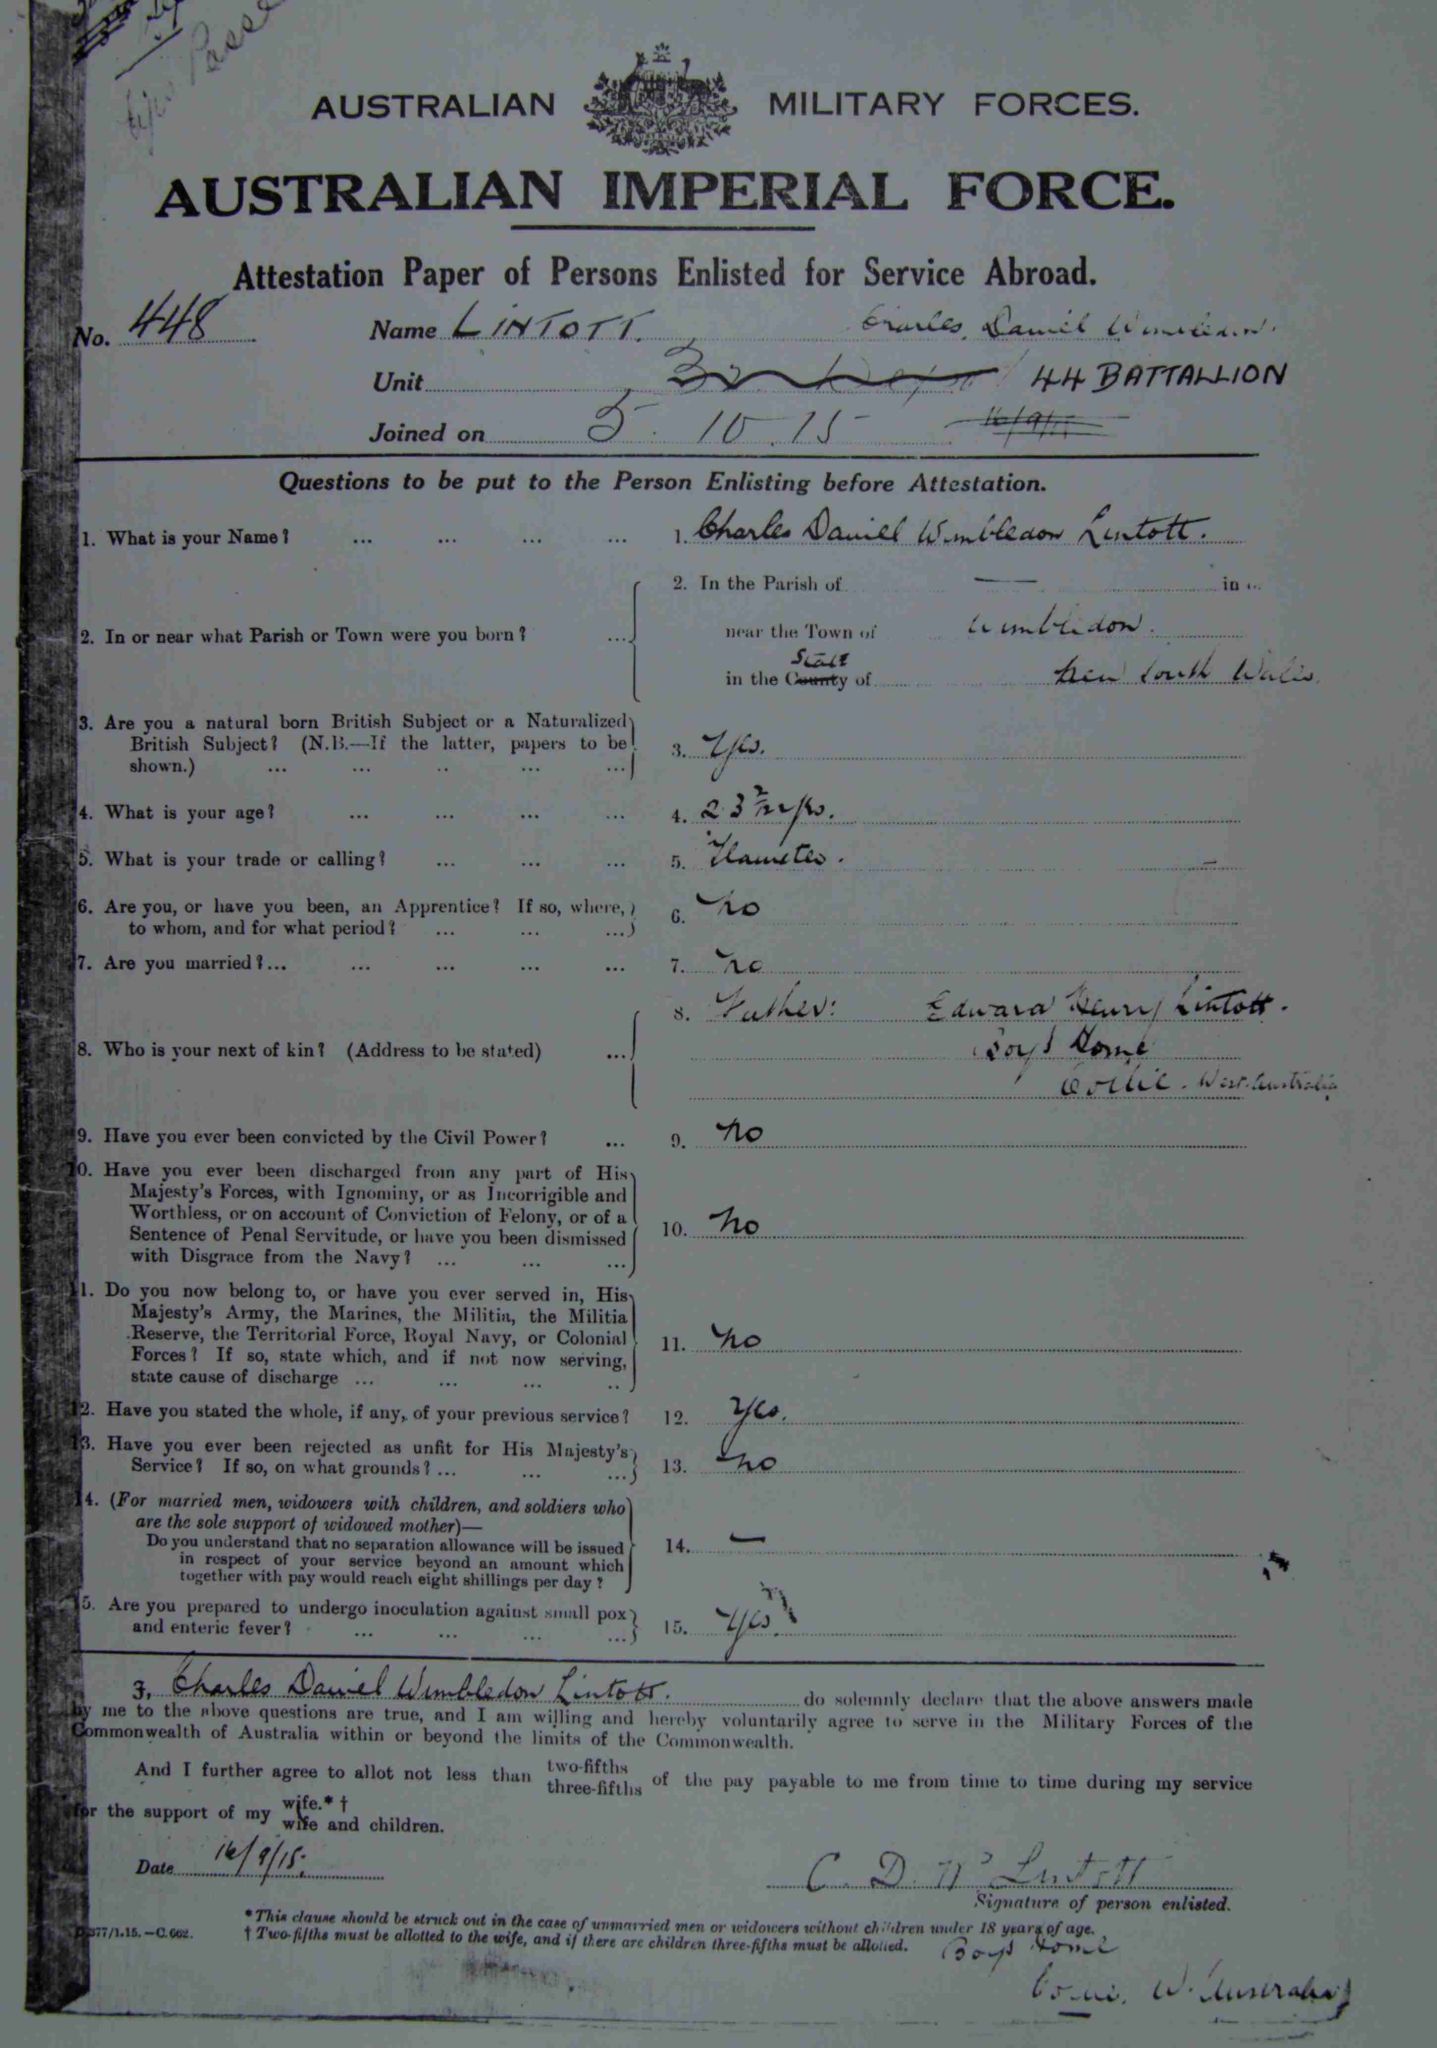 AUSTRALIAN MILITARY FORCES.
AUSTRALIAN IMPERIAL FORCE.
Attestation Paper of Persons Enlisted for Service Abroad.
No. 448 Name LINTOTT. Charles Daniel Wimbledon.
Unit 44 BATTALLION
Joined on 5.10.15 16/9/15
Questions to be put to the Person Enlisting before Attestation.
1. What is your Name? ... ... ... ... 1. Charles Daniel Wimbledon Lintott.
2. In the Parish of — — in
2. In or near what Parish or Town were you born? ... near the Town of Wimbledon.
State
in the County of New South Wales.
3. Are you a natural born British Subject or a Naturalized
British Subject? (N.B.—If the latter, papers to be
shown.) ... ... .. ... ... 3. Yes.
4. What is your age? ... ... ... ... 4. 23 7/12 yrs.
5. What is your trade or calling? ... ... ... 5.
6. Are you, or have you been, an Apprentice? If so, where,
to whom, and for what period? ... ... ... 6. No
7. Are you married?... ... ... ... ... 7. No
8. Father: Edward Henry Lintott.
8. Who is your next of kin? (Address to be stated) ... Boys Home
Collie. West. Australia
9. Have you ever been convicted by the Civil Power? ... 9. No
10. Have you ever been discharged from any part of His
Majesty's Forces, with Ignominy, or as Incorrigible and
Worthless, or on account of Conviction of Felony, or of a
Sentence of Penal Servitude, or have you been dismissed
with Disgrace from the Navy? ... ... ... 10. No
11. Do you now belong to, or have you ever served in, His
Majesty's Army, the Marines, the Militia, the Militia
Reserve, the Territorial Force, Royal Navy, or Colonial
Forces? If so, state which, and if not now serving,
state cause of discharge ... ... ... .. 11. No
12. Have you stated the whole, if any, of your previous service? 12. Yes.
13. Have you ever been rejected as unfit for His Majesty's
Service? If so, on what grounds? ... ... ... 13. No
14. (For married men, widowers with children, and soldiers who
are the sole support of widowed mother)—
Do you understand that no separation allowance will be issued
in respect of your service beyond an amount which
together with pay would reach eight shillings per day? 14. —
15. Are you prepared to undergo inoculation against small pox
and enteric fever? ... ... ... ... 15. Yes.
I, Charles Daniel Wimbledon Lintott. do solemnly declare that the above answers made
by me to the above questions are true, and I am willing and hereby voluntarily agree to serve in the Military Forces of the
Commonwealth of Australia within or beyond the limits of the Commonwealth.
And I further agree to allot not less than two-fifths three-fifths of the pay payable to me from time to time during my service
for the support of my wife.*† wife and children.
Date 16/9/15. C. D. W. Lintott
Signature of person enlisted.
*This clause should be struck out in the case of unmarried men or widowers without children under 18 years of age.
D.377/1.15.—C.602. † Two-fifths must be allotted to the wife, and if there are children three-fifths must be allotted.
Boys Home
Collie. W. Australia